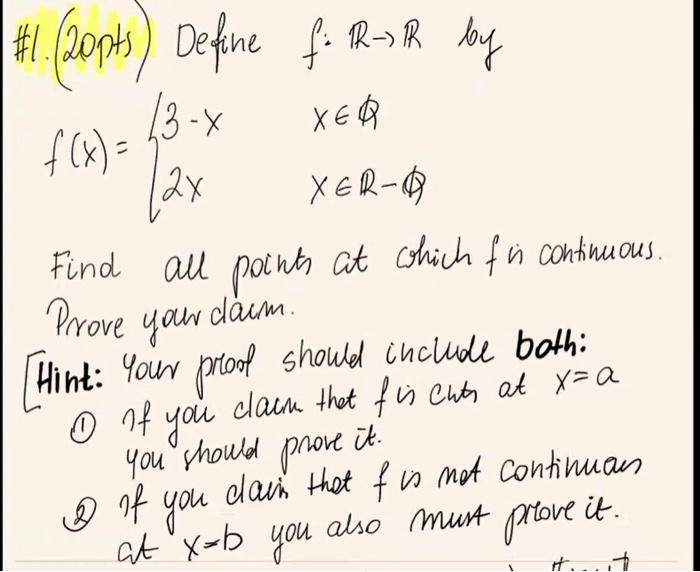 #1. (20pts) Define f: ℝ→ℝ by
f(x) = { 3-x x∈ℚ
2x x∈ℝ-ℚ
Find all points at which f is continuous.
Prove your claim.
[Hint: Your proof should include both:
① If you claim that f is cnts at x=a
you should prove it.
② If you claim that f is not continuous
at x=b you also must prove it.